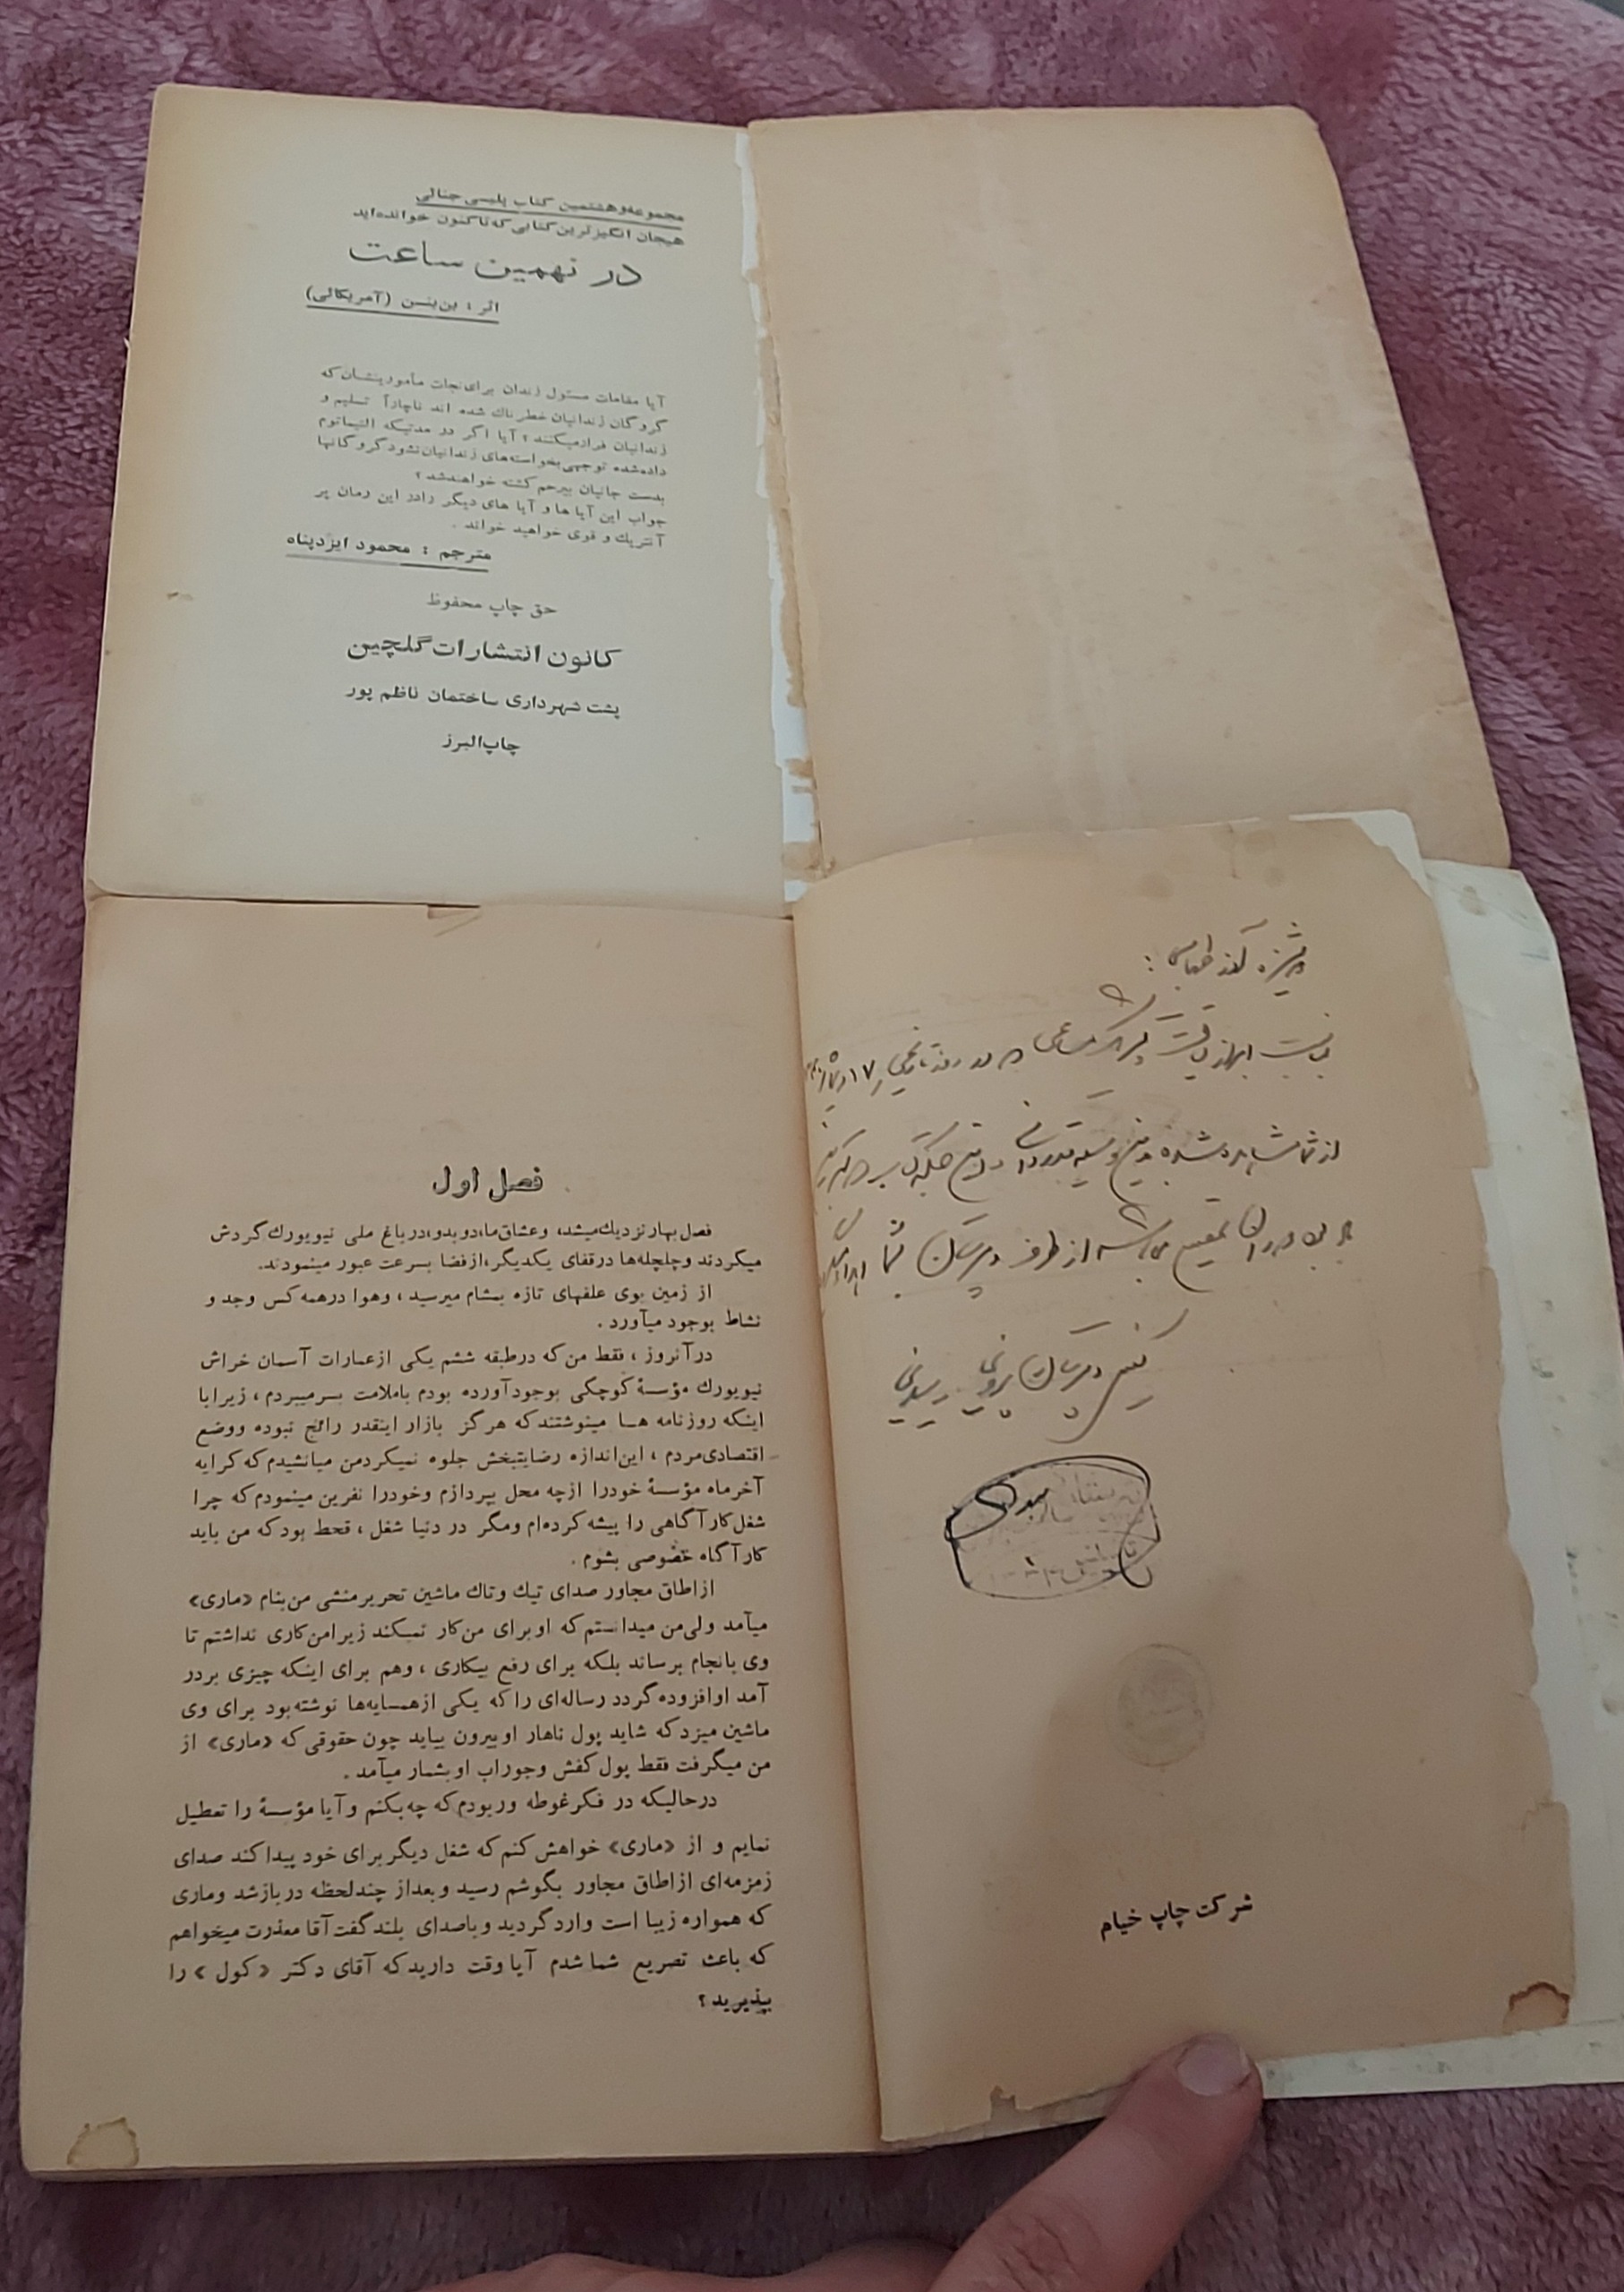 مجموعه‌و‌هشتمین کتاب پلیسی جنائی
هیجان انگیزترین کتابی که تا کنون خوانده‌اید
در نهمین ساعت
اثر : بن‌بنسن (آمریکائی)
آیا مقامات مسئول زندان برای نجات مأمورینشان که
گروگان زندانیان خطرناک شده اند ناچاراً تسلیم و
زندانیان فرارمیکنند؟ آیا اگر در مدتیکه التیماتوم
داده‌شده توجهی بخواسته‌های زندانیان نشود گروگانها
بدست جانیان بیرحم کشته خواهند شد ؟
جواب این آیا ها و آیا های دیگر را در این رمان پر
آنتریک و قوی خواهید خواند .
مترجم : محمود ایزدپناه
حق چاپ محفوظ
کانون انتشارات گلچین
پشت شهرداری ساختمان ناظم پور
چاپ البرز
دوشیزه
بمناسبت ابراز لیاقت
از شما مشاهده شده بدین وسیله قدردانی
از طرف دبیرستان بشما
رئیس دبیرستان
شرکت چاپ خیام
فصل اول
فصل بهار نزدیک میشد، و عشاق ما، دو بدو، در باغ ملی نیویورک گردش
میکردند و چلچله‌ها در قفای یکدیگر، از فضا بسرعت عبور مینمودند.
از زمین بوی علفهای تازه بمشام میرسید ، و هوا در همه کس وجد و
نشاط بوجود میآورد .
در آنروز ، فقط من که در طبقه ششم یکی از عمارات آسمان خراش
نیویورک مؤسسهٔ کوچکی بوجود آورده بودم با ملامت بسر میبردم ، زیرا با
اینکه روزنامه هـا مینوشتند که هرگز بازار اینقدر رائج نبوده و وضع
اقتصادی مردم ، این اندازه رضایتبخش جلوه نمیکرد من میاندیشیدم که کرایه
آخر ماه مؤسسهٔ خود را از چه محل بپردازم و خود را نفرین مینمودم که چرا
شغل کارآگاهی را پیشه کرده‌ام و مگر در دنیا شغل ، قحط بود که من باید
کارآگاه خصوصی بشوم .
از اطاق مجاور صدای تیک و تاک ماشین تحریر منشی من بنام «ماری»
میآمد ولی من میدانستم که او برای من کار نمیکند زیرا من کاری نداشتم تا
وی بانجام برساند بلکه برای رفع بیکاری ، و هم برای اینکه چیزی بر در
آمد او افزوده گردد رساله‌ای را که یکی از همسایه‌ها نوشته بود برای وی
ماشین میزد که شاید پول ناهار او بیرون بیاید چون حقوقی که «ماری» از
من میگرفت فقط پول کفش و جوراب او بشمار میآمد .
در حالیکه در فکر غوطه ور بودم که چه بکنم و آیا مؤسسهٔ را تعطیل
نمایم و از «ماری» خواهش کنم که شغل دیگر برای خود پیدا کند صدای
زمزمه‌ای از اطاق مجاور بگوشم رسید و بعد از چند لحظه در باز شد و ماری
که همواره زیبا است وارد گردید و با صدای بلند گفت آقا معذرت میخواهم
که باعث تصریع شما شدم آیا وقت دارید که آقای دکتر «کول» را
بپذیرید ؟